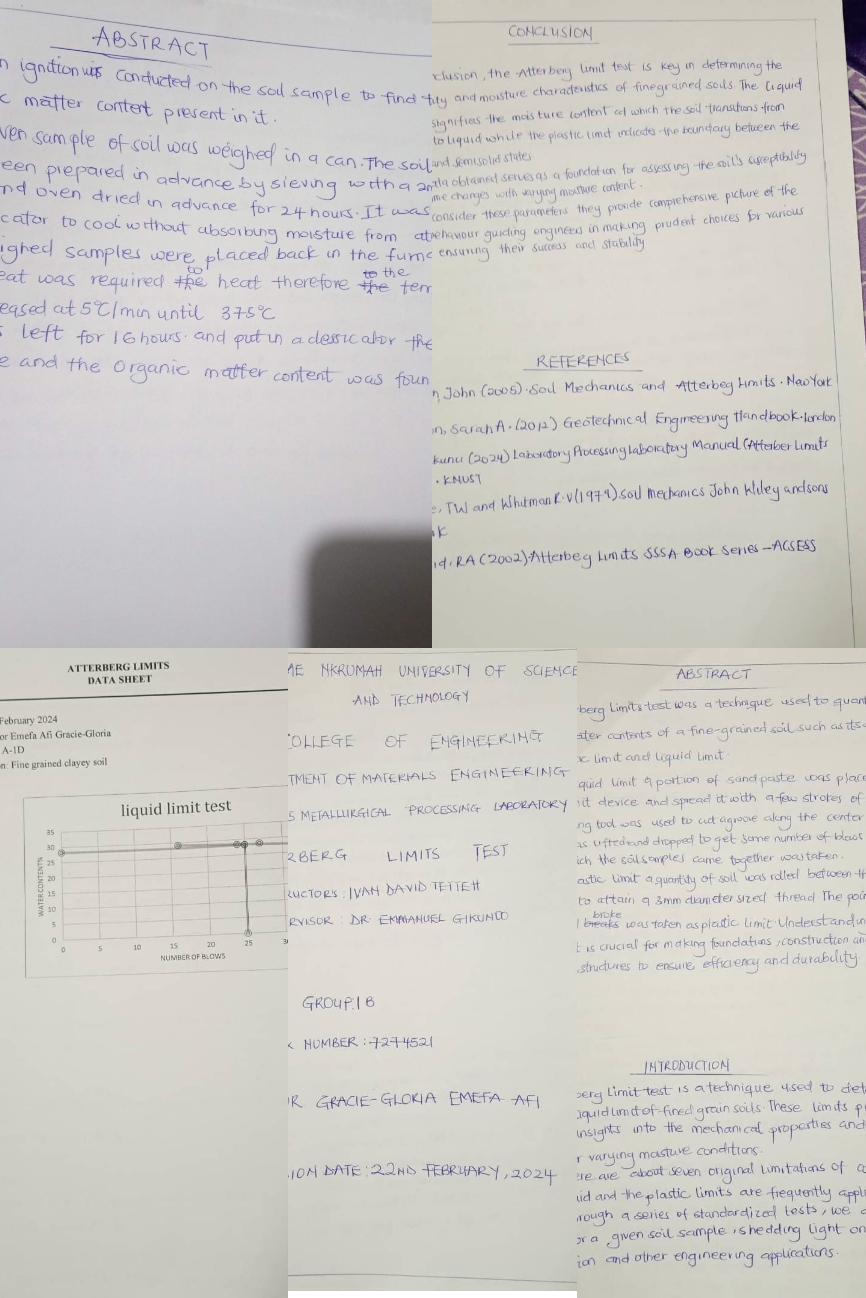 ABSTRACT
n ignition was conducted on the soil sample to find t
c matter content present in it.
ven sample of soil was weighed in a can. The soil
een prepared in advance by sieving with a 2m
nd oven dried in advance for 24 hours. It was
cator to cool without absorbing moisture from at
ighed samples were placed back in the furnc
eat was required to the heat therefore to the the tem
eased at 5°C/min until 375°C
s left for 16 hours. and put in a dessicator the
e and the Organic matter content was foun
CONCLUSION
clusion, the Atterberg limit test is key in determining the
ity and moisture characteristics of finegrained soils. The liquid
signifies the moisture content at which the soil transitions from
to liquid while the plastic limit indicates the boundary between the
and semisolid states
ata obtained serves as a foundation for assessing the soil's susceptibility
me changes with varying moisture content.
consider these parameters they provide comprehensive picture of the
behaviour guiding engineers in making prudent choices for various
ensuring their success and stability
REFERENCES
n, John (2005). Soil Mechanics and Atterbeg Limits. New York
n, Sarah A. (2012) Geotechnical Engineering Handbook. London
kunu (2024) Laboratory Processing Laboratory Manual (Atterber Limits
. KNUST
e, TW and Whitman R.V (1979) soil mechanics John Wiley and sons
rk
id, RA (2002) Atterbeg Limits SSSA Book Series - ACSESS
ATTERBERG LIMITS
DATA SHEET
February 2024
or Emefa Afi Gracie-Gloria
A-1D
n: Fine grained clayey soil
liquid limit test
35
30
25
20
15
10
5
0
WATER CONTENT%
0 5 10 15 20 25 3
NUMBER OF BLOWS
ME NKRUMAH UNIVERSITY OF SCIENCE
AND TECHNOLOGY
COLLEGE OF ENGINEERING
TMENT OF MATERIALS ENGINEERING
5 METALLURGICAL PROCESSING LABORATORY
RBERG LIMITS TEST
RUCTORS: IVAN DAVID TETTEH
RVISOR: DR EMMANUEL GIKUNOO
GROUP: 1B
X NUMBER: 7274521
OR GRACIE-GLORIA EMEFA AFI
ION DATE: 22ND FEBRUARY, 2024
ABSTRACT
berg limits test was a technique used to quant
ater contents of a fine-grained soil such as its
ic limit and liquid limit.
quid limit a portion of sand paste was place
it device and spread it with a few strokes of
ng tool was used to cut a groove along the center
as lifted and dropped to get some number of blows
ich the soil samples came together was taken.
astic limit a quantity of soil was rolled between th
to attain a 3mm diameter sized thread The poin
l breaks broke was taken as plastic limit. Understandin
t is crucial for making foundations, construction an
structures to ensure efficiency and durability
INTRODUCTION
berg Limit test is a technique used to dete
liquid limit of fined grain soils. These limits p
insights into the mechanical properties and
r varying moisture conditions.
ere are about seven original limitations of co
uid and the plastic limits are frequently appli
hrough a series of standardized tests, we a
or a given soil sample, shedding light on
ion and other engineering applications.